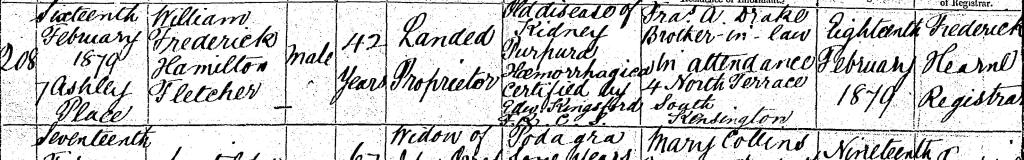 of Registrar.
208
Sixteenth
February
1879
7 Ashley
Place
William
Frederick
Hamilton
Fletcher
Male
42
Years
Landed
Proprietor
Old disease of
Kidney
Purpura
Hæmorrhagica
Certified by
Edw. Kingsford
F. R. C. S.
Fra.s A. Drake
Brother-in-law
in attendance
4 North Terrace
South
Kensington
Eighteenth
February
1879
Frederick
Hearne
Registrar
Seventeenth
Widow of
Podagra
some years
Mary Collins
Nineteenth